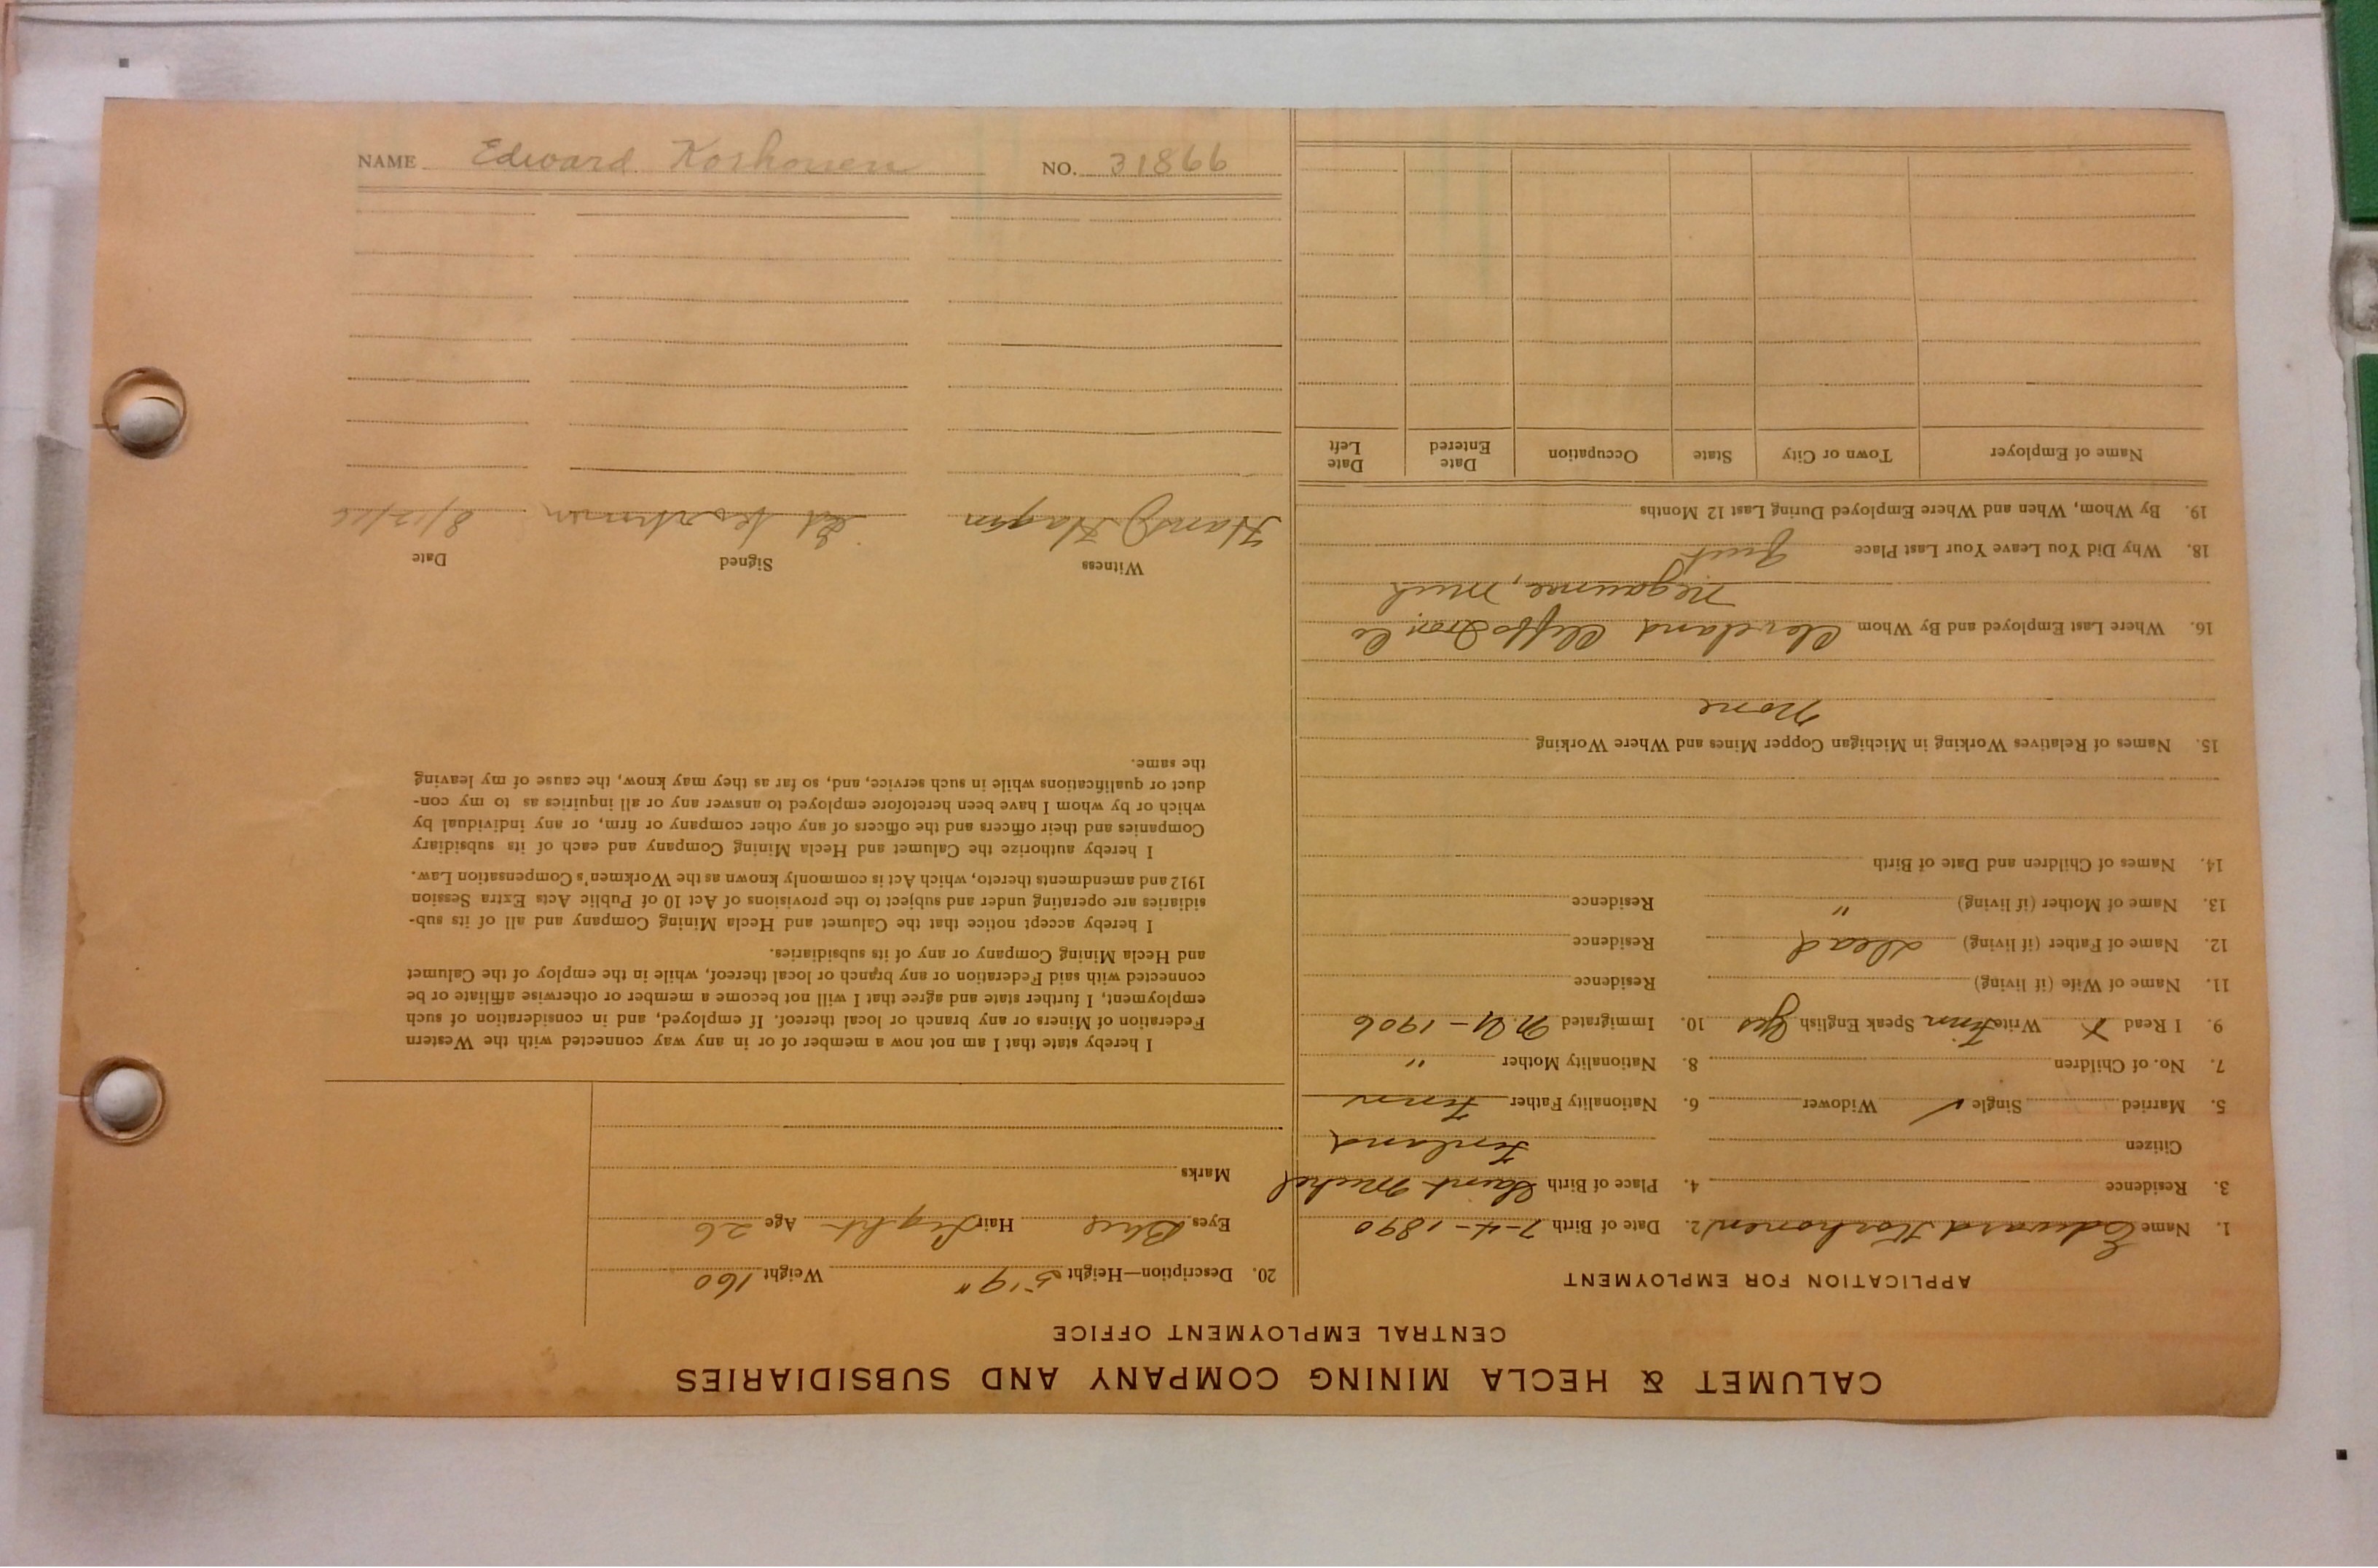 CALUMET & HECLA MINING COMPANY AND SUBSIDIARIES
CENTRAL EMPLOYMENT OFFICE
APPLICATION FOR EMPLOYMENT
1. Name Edward Korhonen 2. Date of Birth 7-4-1890
3. Residence 4. Place of Birth Saint Michel
Citizen Finland
5. Married Single ✓ Widower 6. Nationality Father Finn
7. No. of Children 8. Nationality Mother "
9. I Read X Write Finn Speak English Yes 10. Immigrated N.Y - 1906
11. Name of Wife (if living) Residence
12. Name of Father (if living) Dead Residence
13. Name of Mother (if living) " Residence
14. Names of Children and Date of Birth
15. Names of Relatives Working in Michigan Copper Mines and Where Working
None
16. Where Last Employed and By Whom Cleveland Cliffs Iron Co
Negaunee, Mich
18. Why Did You Leave Your Last Place Quit
19. By Whom, When and Where Employed During Last 12 Months
Name of Employer Town or City State Occupation Date Entered Date Left
20. Description—Height 5'9" Weight 160
Eyes Blue Hair Light Age 26
Marks
I hereby state that I am not now a member of or in any way connected with the Western
Federation of Miners or any branch or local thereof. If employed, and in consideration of such
employment, I further state and agree that I will not become a member or otherwise affiliate or be
connected with said Federation or any branch or local thereof, while in the employ of the Calumet
and Hecla Mining Company or any of its subsidiaries.
I hereby accept notice that the Calumet and Hecla Mining Company and all of its sub-
sidiaries are operating under and subject to the provisions of Act 10 of Public Acts Extra Session
1912 and amendments thereto, which Act is commonly known as the Workmen's Compensation Law.
I hereby authorize the Calumet and Hecla Mining Company and each of its subsidiary
Companies and their officers and the officers of any other company or firm, or any individual by
which or by whom I have been heretofore employed to answer any or all inquiries as to my con-
duct or qualifications while in such service, and, so far as they may know, the cause of my leaving
the same.
Witness Signed Date
Hagen Ed Korhonen 8/12/16
NAME Edward Korhonen NO. 31866